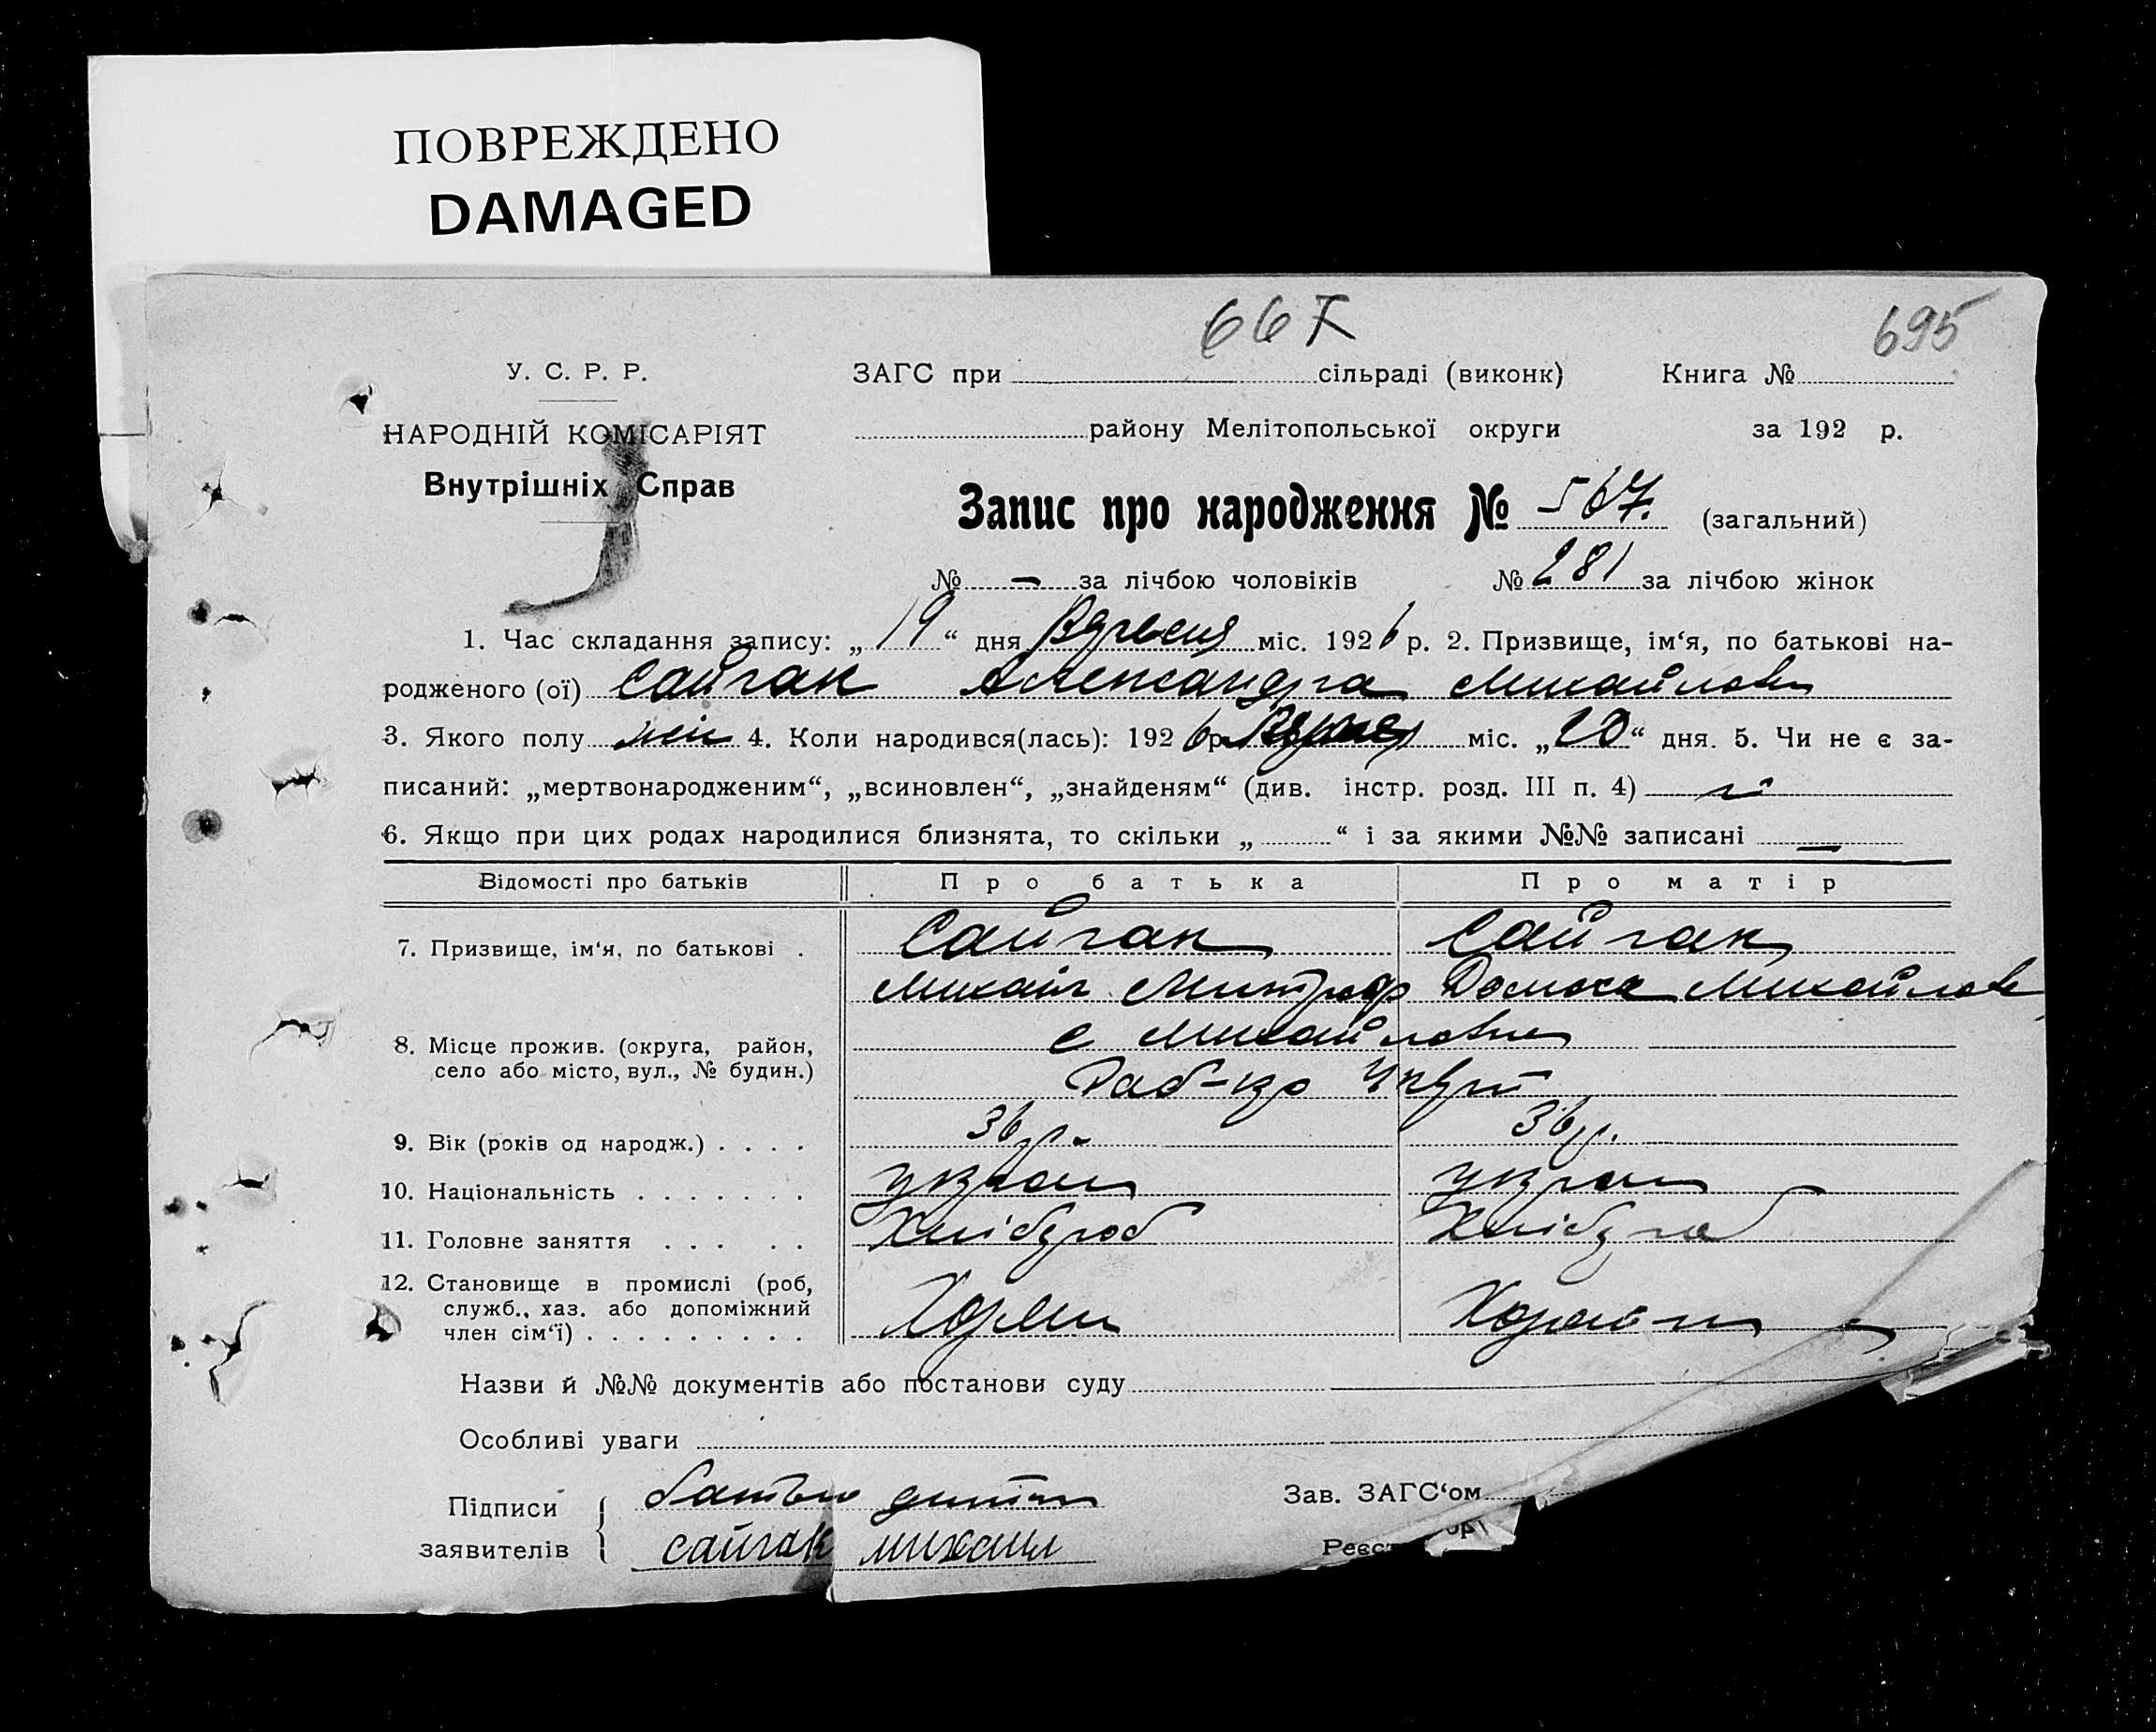 ПОВРЕЖДЕНО
DAMAGED
667
695
У. С. Р. Р.
ЗАГС при сільраді (виконк) Книга №
НАРОДНІЙ КОМІСАРІЯТ
району Мелітопольської округи за 192 р.
Внутрішніх Справ
Запис про народження № 567. (загальний)
№ — за лічбою чоловіків № 281 за лічбою жінок
1. Час складання запису: „19“ дня Вересня міс. 1926 р. 2. Призвище, ім‘я, по батькові на-
родженого (ої) Сайгак Александра Михайлов
3. Якого полу жін 4. Коли народився(лась): 1926 р. міс. „20“ дня. 5. Чи не є за-
писаний: „мертвонародженим“, „всиновлен“, „знайденям“ (див. інстр. розд. III п. 4) ні
6. Якщо при цих родах народилися близнята, то скільки „ “ і за якими №№ записані —
Відомості про батьків Про батька Про матір
7. Призвище, ім‘я, по батькові . Сайгак Сайгак
Михаїл Митроф Домаха Михайлов
8. Місце прожив. (округа, район, с Михайловка
село або місто, вул., № будин.)
9. Вік (років од народж.) . . . . 36 р. 36 р.
10. Національність . . . . . . . украін украін
11. Головне заняття . . . . . Хлібороб Хлібороб
12. Становище в промислі (роб,
служб., хаз. або допоміжний
член сім‘ї) . . . . . . . . .
Назви й №№ документів або постанови суду
Особливі уваги
Підписи батько дитини Зав. ЗАГС‘ом
заявителів сайгак михаил Реєст